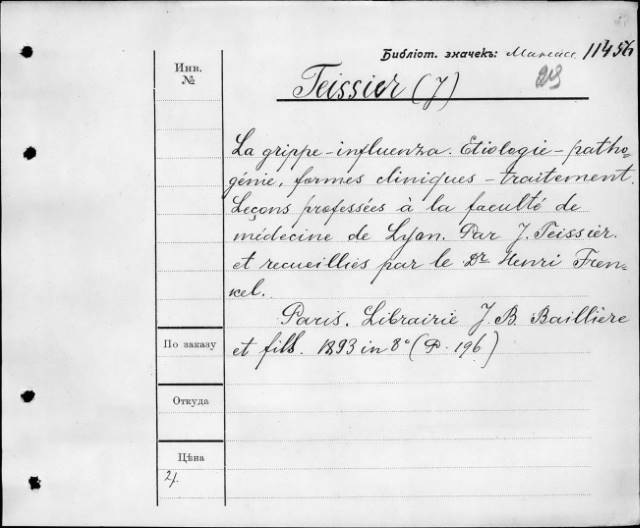 Библіот. значекъ: 11456
Инв.
№
Teissier (J)
La grippe-influenza. Etiologie-patho-
génie, formes cliniques - traitement.
Leçons professées à la faculté de
médecine de Lyon. Par J. Teissier.
et recueillies par le Dr Henri Fren-
kel.
Paris. Librairie J. B. Baillière
По заказу
et fills. 1893 in 8° (P. 196)
Откуда
Цѣна